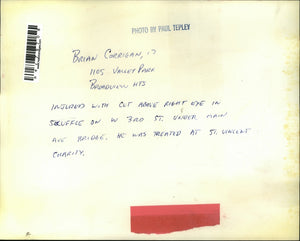 PHOTO BY PAUL TEPLEY
BRIAN CORRIGAN, 17
1105 VALLEY PARK
BROADVIEW HTS
INJURED WITH CUT ABOVE RIGHT EYE IN
SCUFFLE ON W 3RD ST. UNDER MAIN
AVE BRIDGE. HE WAS TREATED AT ST. VINCENT
CHARITY.